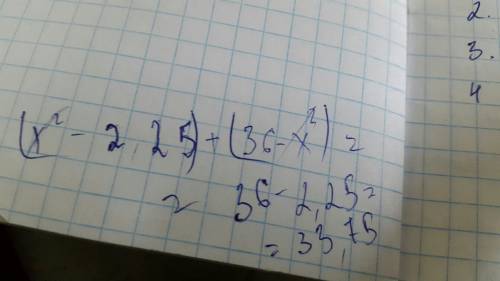 (x² - 2,25) + (36 - x²) =
= 36 - 2,25 =
= 33,75
2.
3.
4